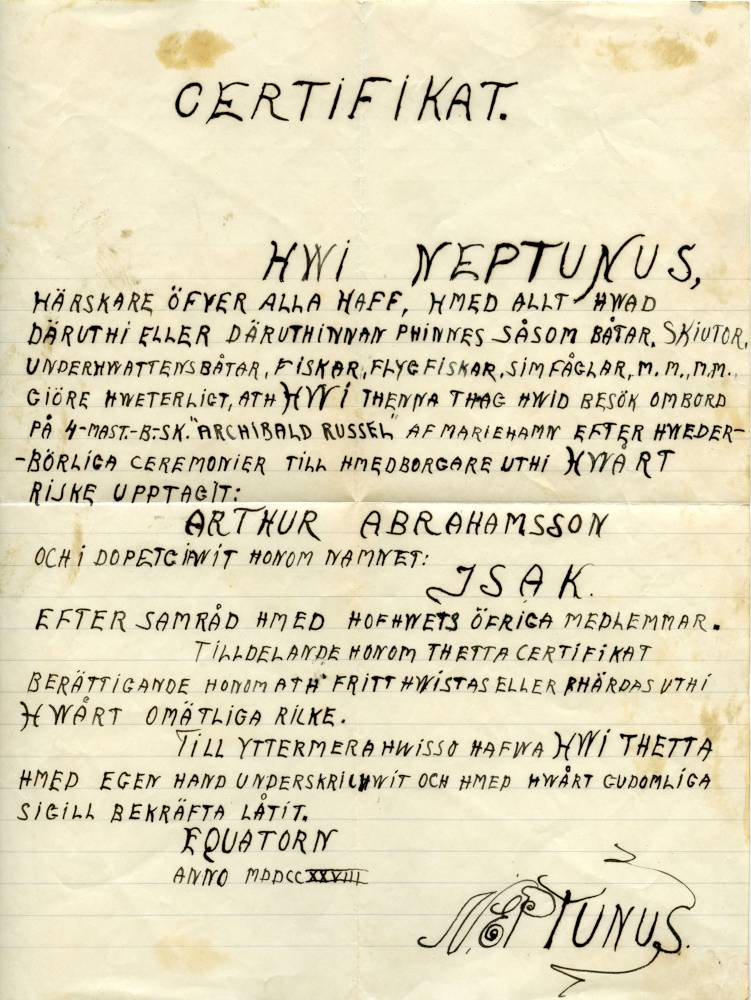 CERTIFIKAT.
HWI NEPTUNUS,
HÄRSKARE ÖFVER ALLA HAFF, HMED ALLT HWAD
DÄRUTHI ELLER DÄRUTHINNAN PHINNES SÅSOM BÅTAR, SKIUTOR,
UNDERHWATTENSBÅTAR, FISKAR, FLYGFISKAR, SIMFÅGLAR, M.M., M.M.,
GIÖRE HWETERLIGT, ATH HWI THENNA THAG HWID BESÖK OMBORD
PÅ 4-MAST.-B.-SK. "ARCHIBALD RUSSEL" AF MARIEHAMN EFTER HWEDER-
-BÖRLIGA CEREMONIER TILL HMEDBORGARE UTHI HWÅRT
RIJKE UPPTAGIT:
ARTHUR ABRAHAMSSON
OCH I DOPET GIFWIT HONOM NAMNET:
ISAK.
EFTER SAMRÅD HMED HOFHWETS ÖFRIGA MEDLEMMAR.
TILLDELANDE HONOM THETTA CERTIFIKAT
BERÄTTIGANDE HONOM ATH FRITT HWISTAS ELLER PHÄRDAS UTHI
HWÅRT OMÄTLIGA RILKE.
TILL YTTERMERA HWISSO HAFWA HWI THETTA
HMED EGEN HAND UNDERSKRILHWIT OCH HMED HWÅRT GUDOMLIGA
SIGILL BEKRÄFTA LÅTIT.
EQUATORN
ANNO MDDCCXXVIII
NEPTUNUS.